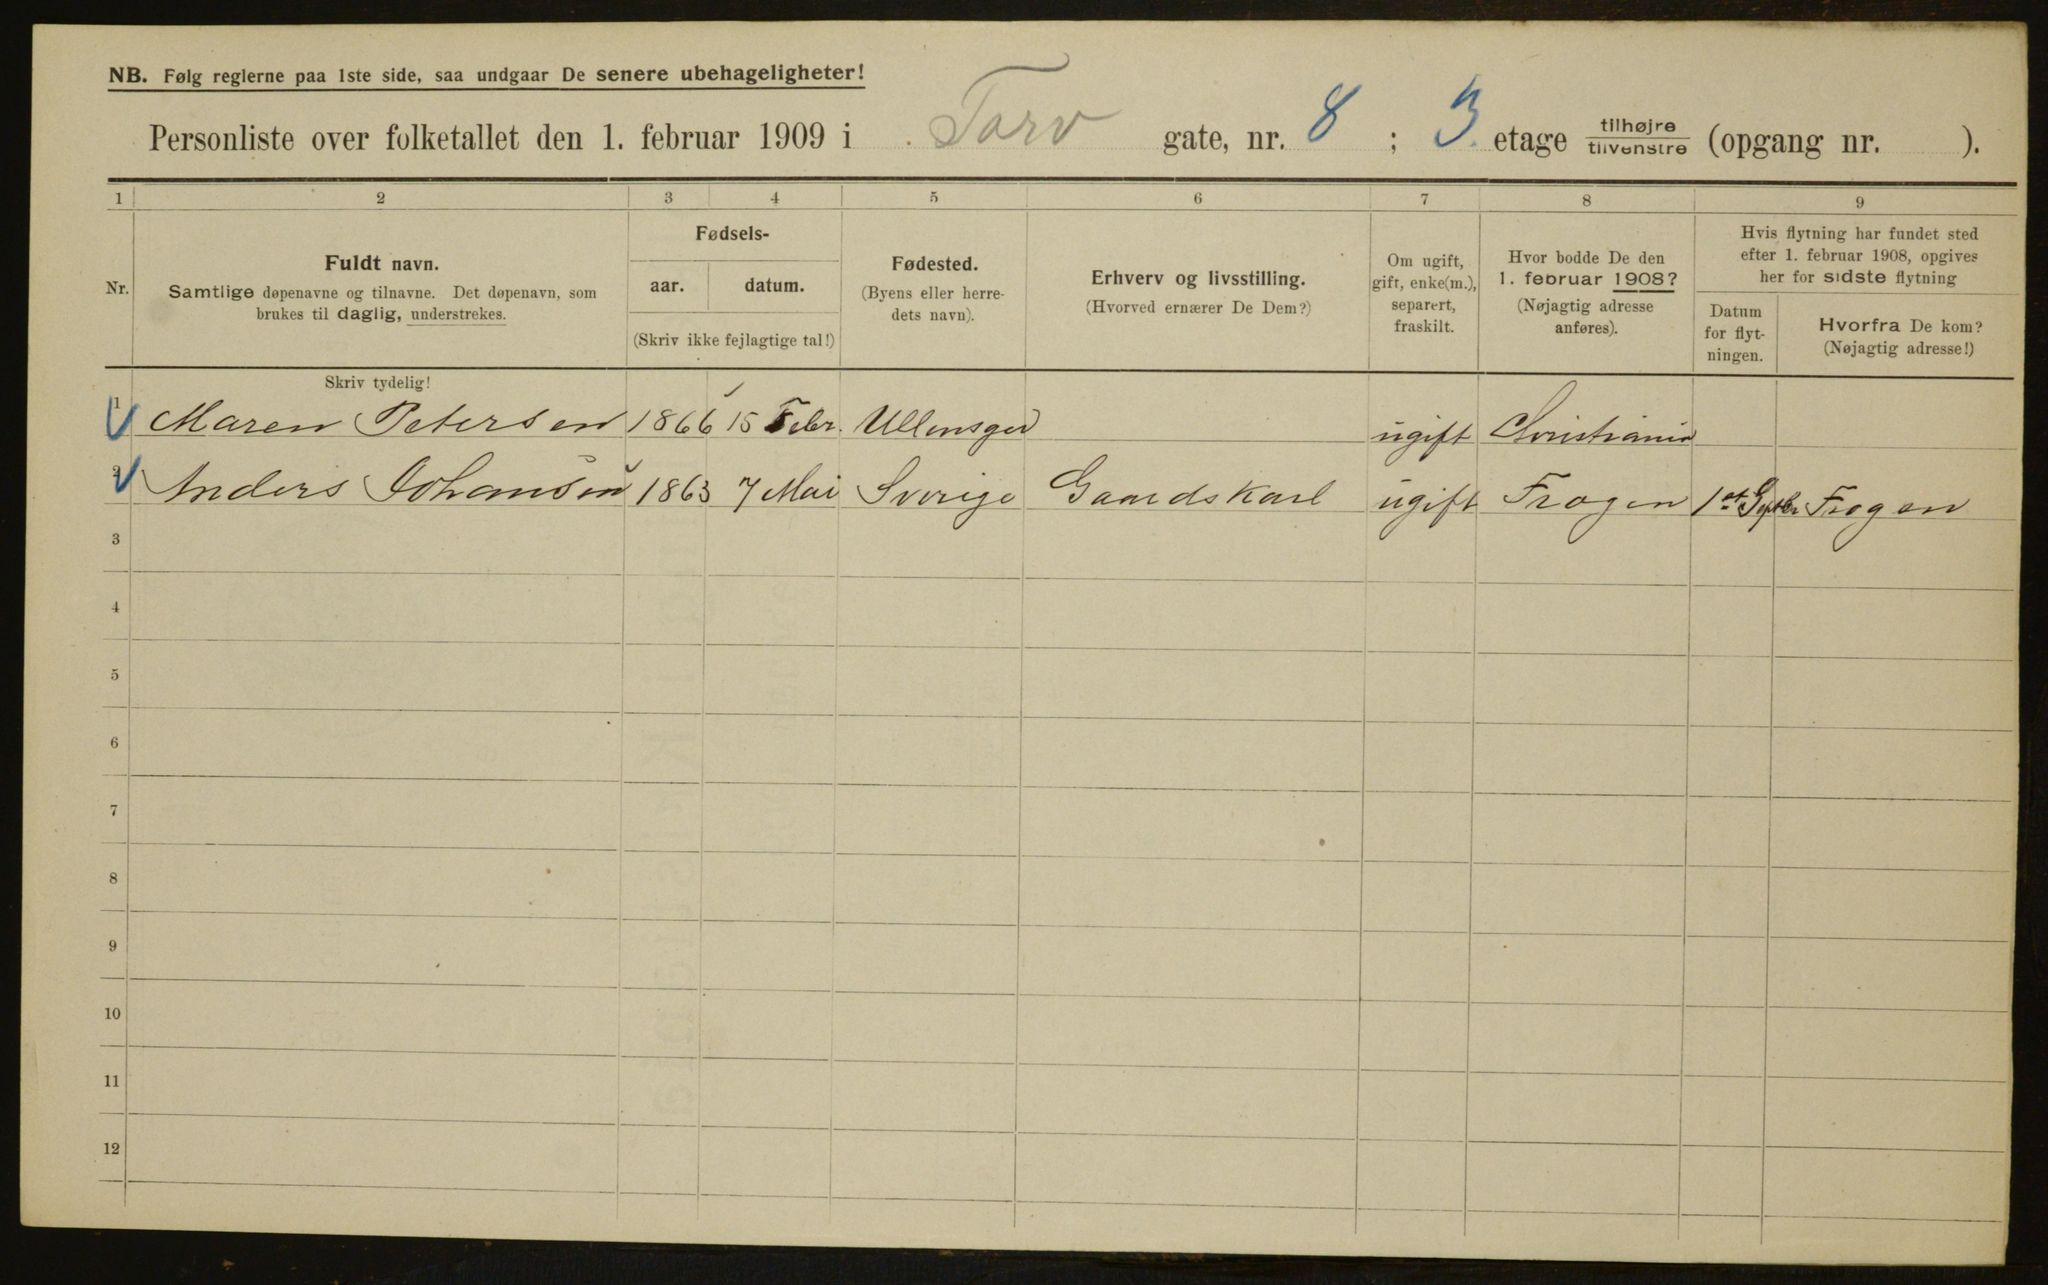 NB. Følg reglerne paa 1ste side, saa undgaar De senere ubehageligheter!
Personliste over folketallet den 1. februar 1909 i Torv gate, nr. 8 ; 3. etage tilhøjre tilvenstre (opgang nr. ).
1 2 3 4 5 6 7 8 9
Nr.
Fuldt navn.
Samtlige døpenavne og tilnavne. Det døpenavn, som
brukes til daglig, understrekes.
Skriv tydelig!
Fødsels-
aar. datum.
(Skriv ikke fejlagtige tal!)
Fødested.
(Byens eller herre-
dets navn).
Erhverv og livsstilling.
(Hvorved ernærer De Dem?)
Om ugift,
gift, enke(m.),
separert,
fraskilt.
Hvor bodde De den
1. februar 1908?
(Nøjagtig adresse
anføres).
Hvis flytning har fundet sted
efter 1. februar 1908, opgives
her for sidste flytning
Datum
for flyt-
ningen.
Hvorfra De kom?
(Nøjagtig adresse!)
1 Maren Petersen 1866 15 Febr. Ullensger ugift Christiania
2 Anders Johansen 1863 7 Mai Sverige Gaardskarl ugift Frogen 1st Septbr Frogen
3
4
5
6
7
8
9
10
11
12